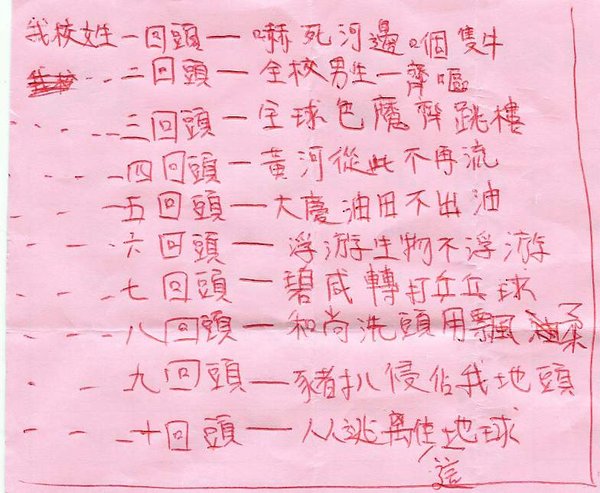 我校女生一回頭一嚇死河邊嗰隻牛
我校---二回頭一全校男生一齊嘔
---三回頭一全球色魔齊跳樓
---四回頭一黃河從此不再流
---五回頭一大慶油田不出油
---六回頭一浮游生物不浮游
---七回頭一碧咸轉打乒乓球
---八回頭一和尚洗頭用飄柔
---九回頭一豬扒侵佔我地頭
---十回頭一人人逃離地球
這